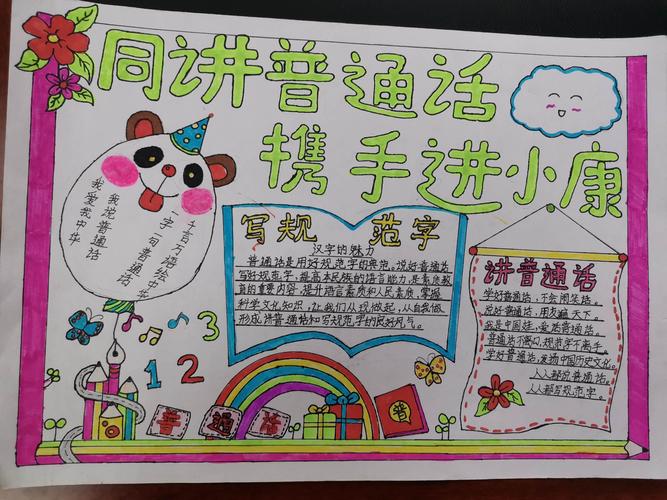 同讲普通话
携手进小康
千言万语绘中华
一字一句普通话
我说普通话
我爱我中华
写规范字
汉字的魅力
普通话是用好规范字的典范。说好普通话
写好规范字,提高本民族的语言能力,是素质教
育的重要内容,提升语言素质和人民素质,掌握
科学文化知识,让我们从现做起,从自我做
形成讲普通话和写规范字的良好风气。
讲普通话
学好普通话,不会闹笑话。
说好普通话,用友遍天下。
我是中国娃,爱说普通话。
普通话不离口,规范字不离手。
学好普通话,发扬中国历史文化。
人人都说普通话。
人人都写规范字。
1 2 3
普通话
普